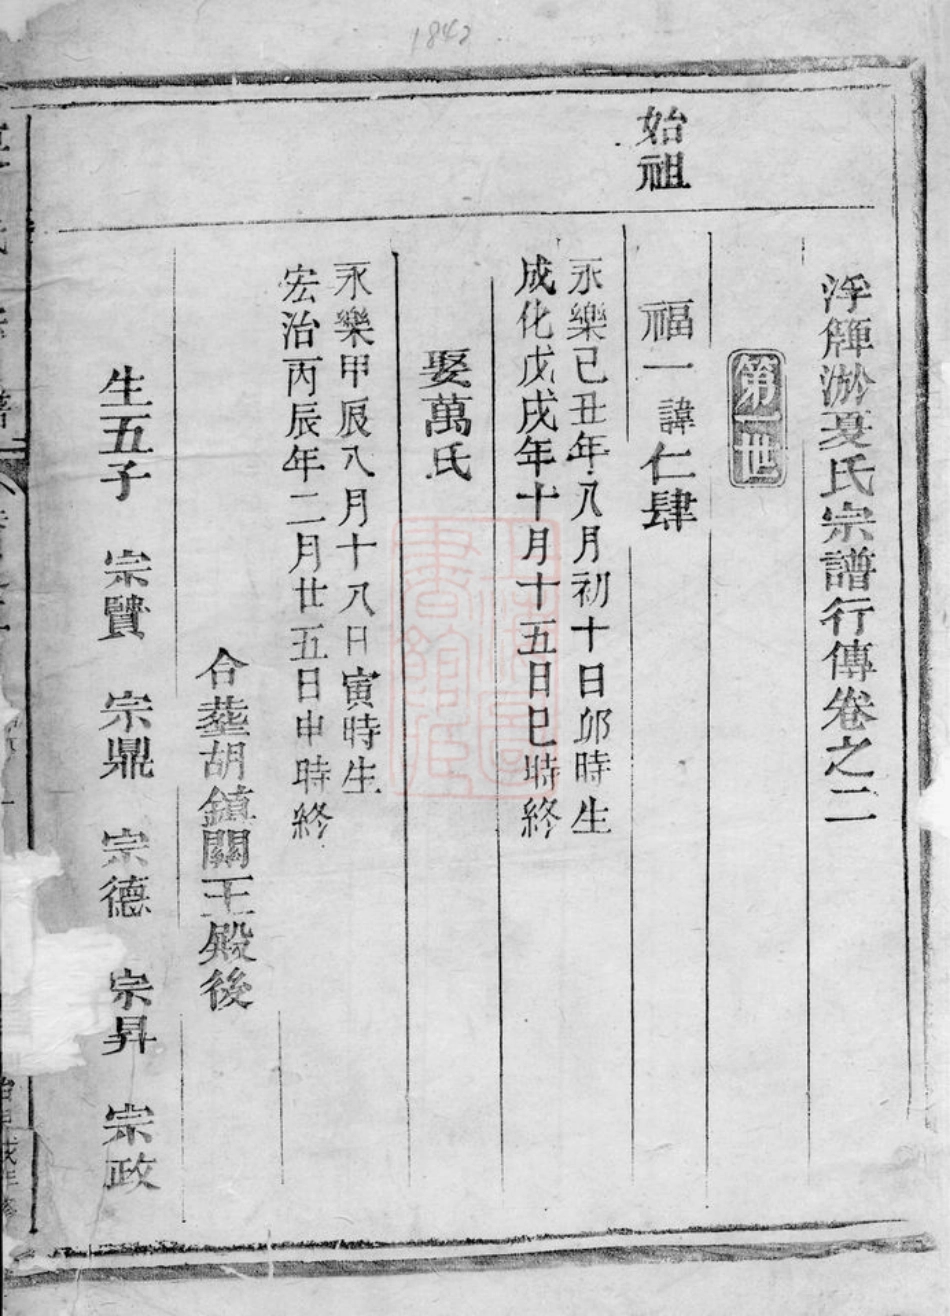 1842
浮 淤夏氏宗譜行傳卷之二
第一世
始祖
福一 諱仁肆
永樂己丑年八月初十日卯時生
成化戊戌年十月十五日巳時終
娶萬氏
永樂甲辰八月十八日寅時生
宏治丙辰年二月廿五日申時終
合塟胡鎮關王殿後
生五子 宗賢 宗鼎 宗德 宗昇 宗政